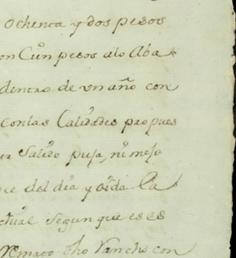 ochenta y dos pesos
on Cun pesos alo Aba
dentro de un año con
con las Calidades propues
Salido puja, ni mejo
el dia y oida la
ctual segun que es es
Remato dho Rancho con